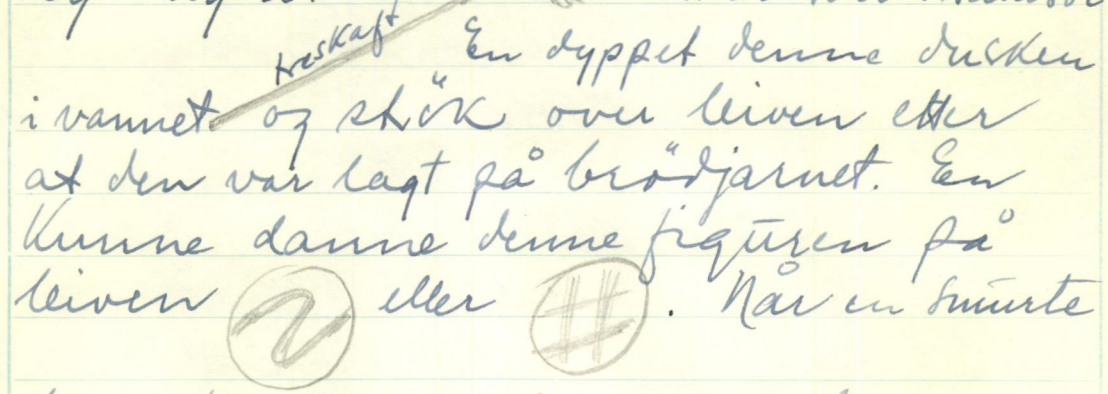 treskaft
En dyppet denne dusken
i vannet og strök over leiven etter
at den var lagt på brödjarnet. En
kunne danne denne figuren på
leiven eller . Når en smurte